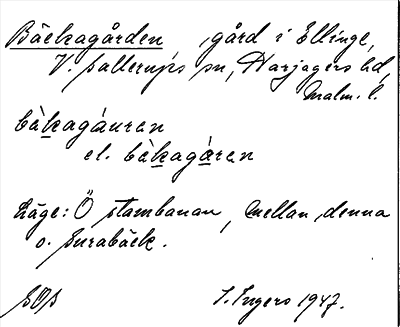 Bäckagården, gård i Ellinge,
V. Sallerups sn, Harjagers hd,
Malm. l.
bàkagáuren
el. bàkagàren
Läge: Ö stambanan, mellan denna
o. Surabäck.
SOS I. Ingers 1947.